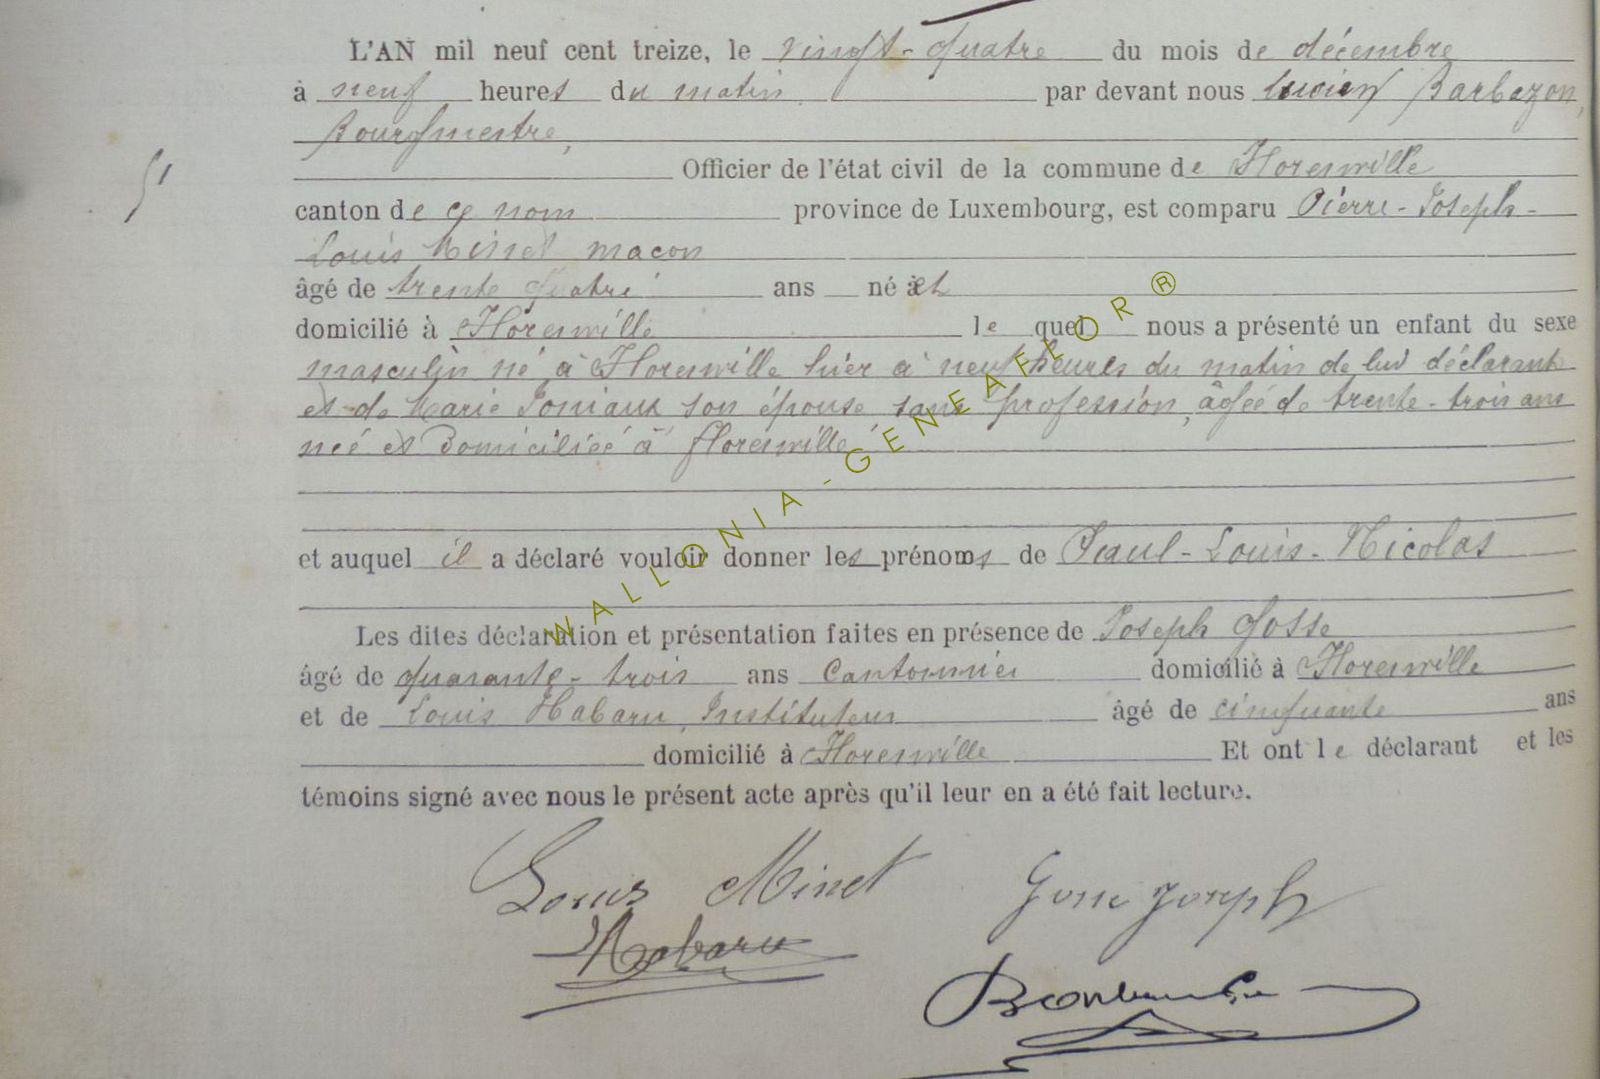 L'AN mil neuf cent treize, le vingt-quatre du mois de décembre
à neuf heures du matin par devant nous Lucien Barbazon,
Bourgmestre,
Officier de l'état civil de la commune de Florenville
51
canton de ce nom province de Luxembourg, est comparu Pierre-Joseph-
Louis Minet maçon
âgé de trente quatre ans né et
domicilié à Florenville lequel nous a présenté un enfant du sexe
masculin né à Florenville hier à neuf heures du matin de lui déclarant
et de Marie Joniaux son épouse sans profession, âgée de trente-trois ans
née et domiciliée à Florenville
et auquel il a déclaré vouloir donner les prénoms de Paul-Louis-Nicolas
Les dites déclaration et présentation faites en présence de Joseph Gosse
âgé de quarante-trois ans Cantonnier domicilié à Florenville
et de Louis Habaru, Instituteur âgé de cinquante ans
domicilié à Florenville Et ont le déclarant et les
témoins signé avec nous le présent acte après qu'il leur en a été fait lecture.
Louis Minet Gosse Joseph
Habaru
WALLONIA-GENEAFLOR®